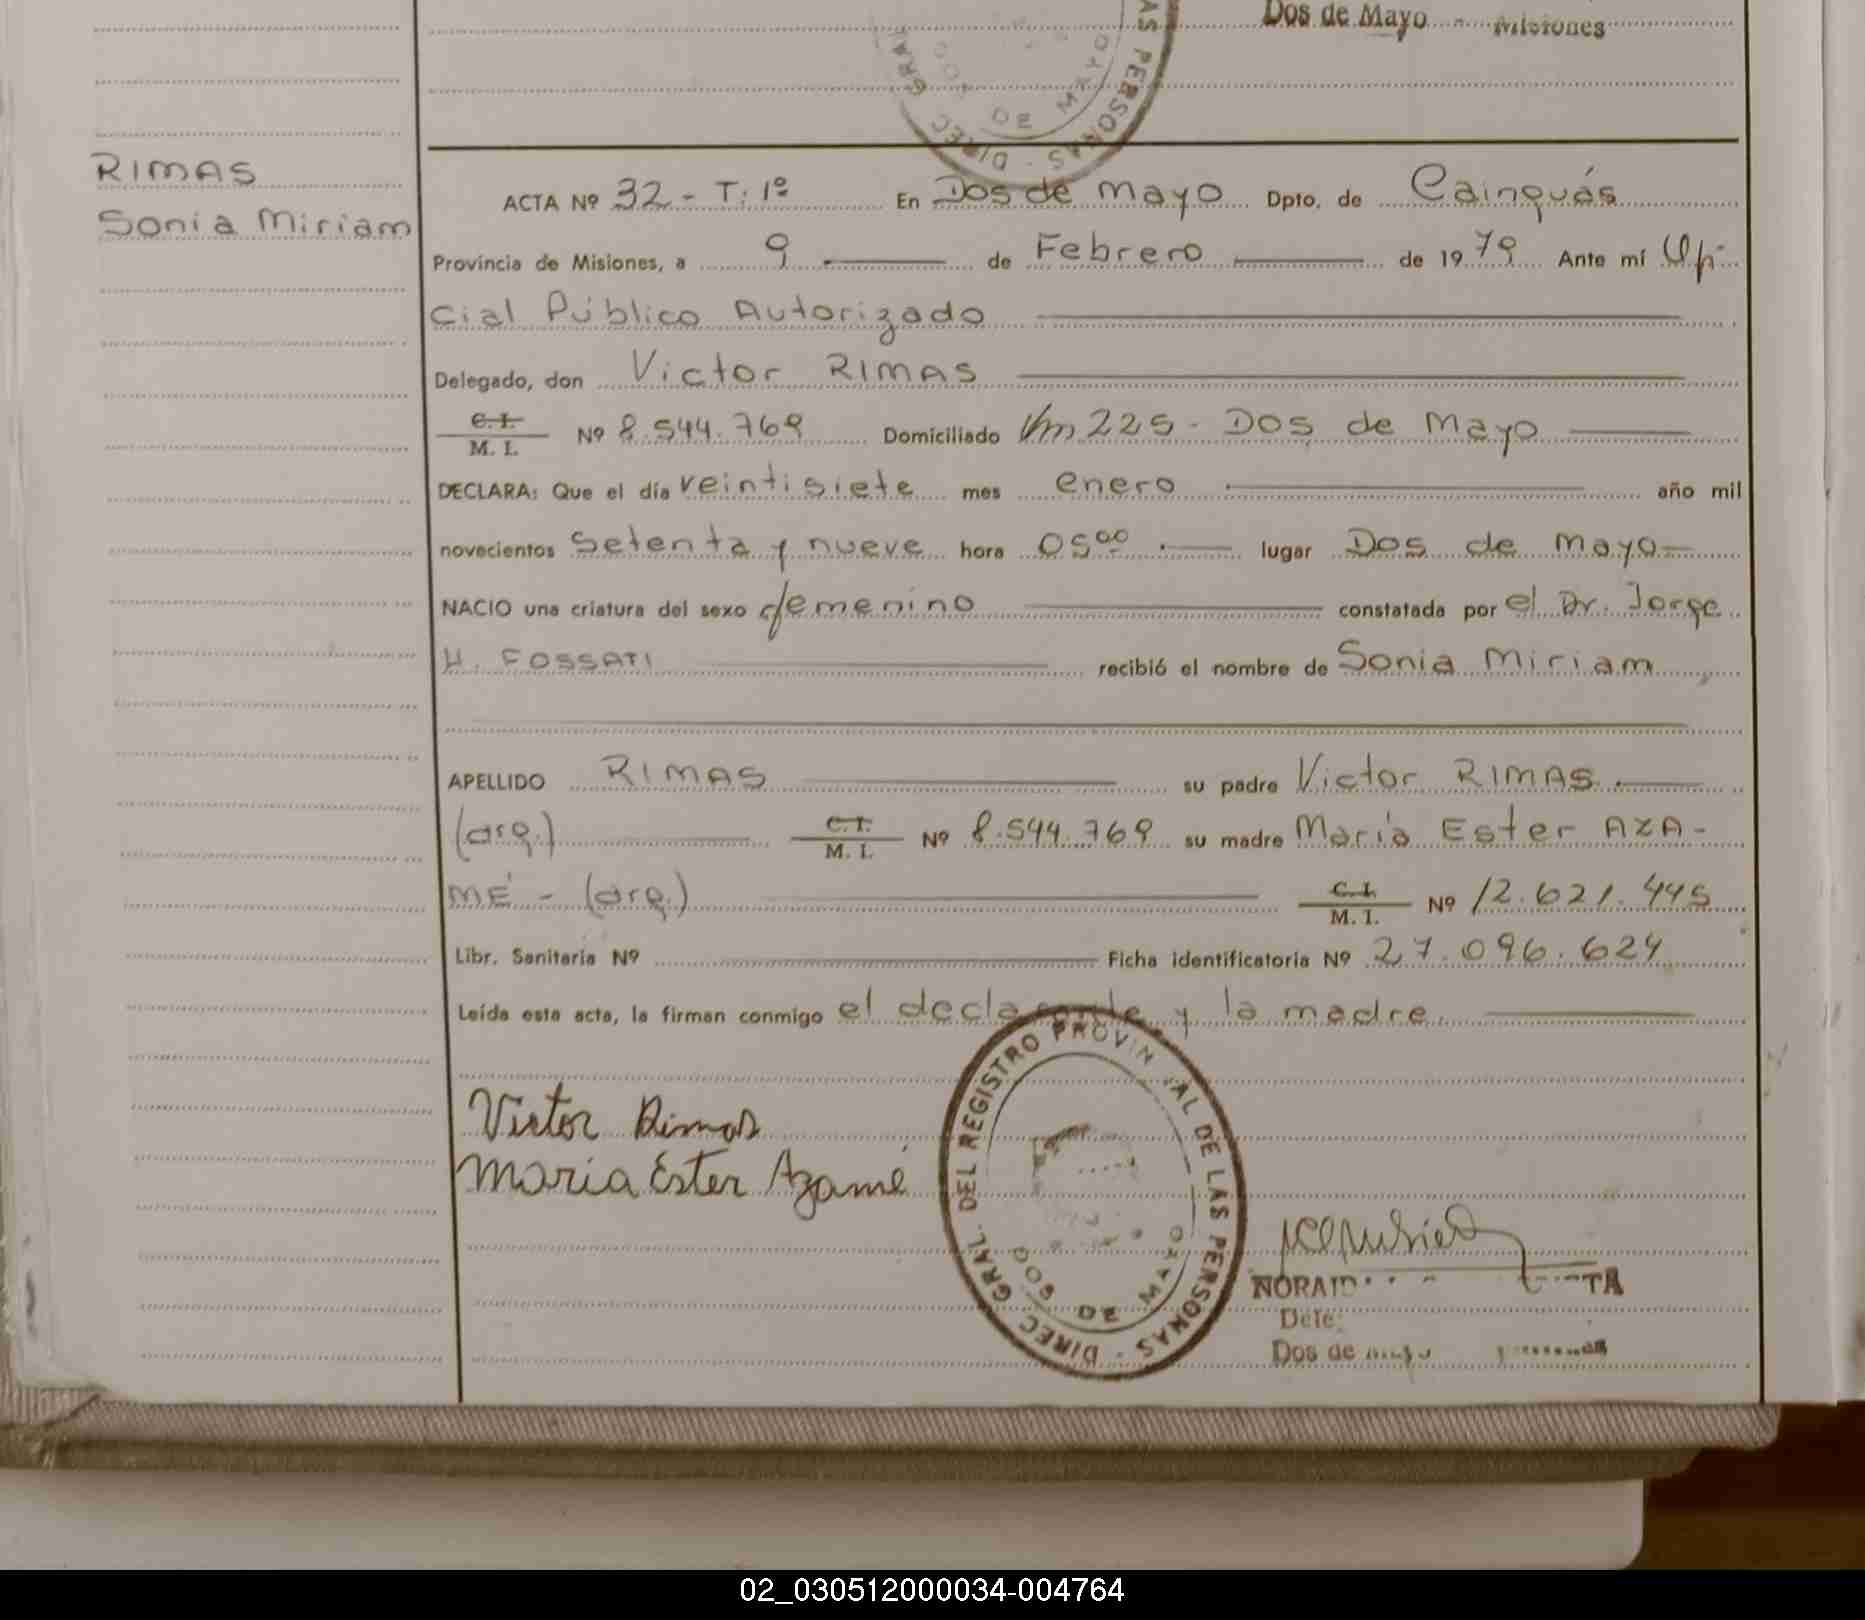 Dos de Mayo - Misiones
DIREC GRA AS PERSONAS
DOS DE MAYO
RIMAS
Sonia Miriam
ACTA Nº 32 - T: 1º En Dos de Mayo Dpto. de Cainguás
Provincia de Misiones, a 9 de Febrero de 1979 Ante mí Ofi-
cial Público Autorizado
Delegado, don Victor RIMAS
C. I.
M. I. Nº 8.544.769 Domiciliado Km 225 - Dos de Mayo
DECLARA: Que el día veintisiete mes enero año mil
novecientos setenta y nueve hora 05⁰⁰ lugar Dos de Mayo
NACIO una criatura del sexo femenino constatada por el Dr. Jorge
H. FOSSATI recibió el nombre de Sonia Miriam
APELLIDO RIMAS su padre Victor RIMAS
(arg.) C. I. M. I. Nº 8.544.769 su madre María Ester AZA-
MÉ - (arg.) C. I. M. I. Nº 12.621.445
Libr. Sanitaria Nº Ficha identificatoria Nº 27.096.624
Leída esta acta, la firman conmigo el declarante y la madre.
Victor Rimas
Maria Ester Azamé
DIREC GRAL. DEL REGISTRO PROVIN IAL DE LAS PERSONAS
DOS DE MAYO
Dos de
02_030512000034-004764